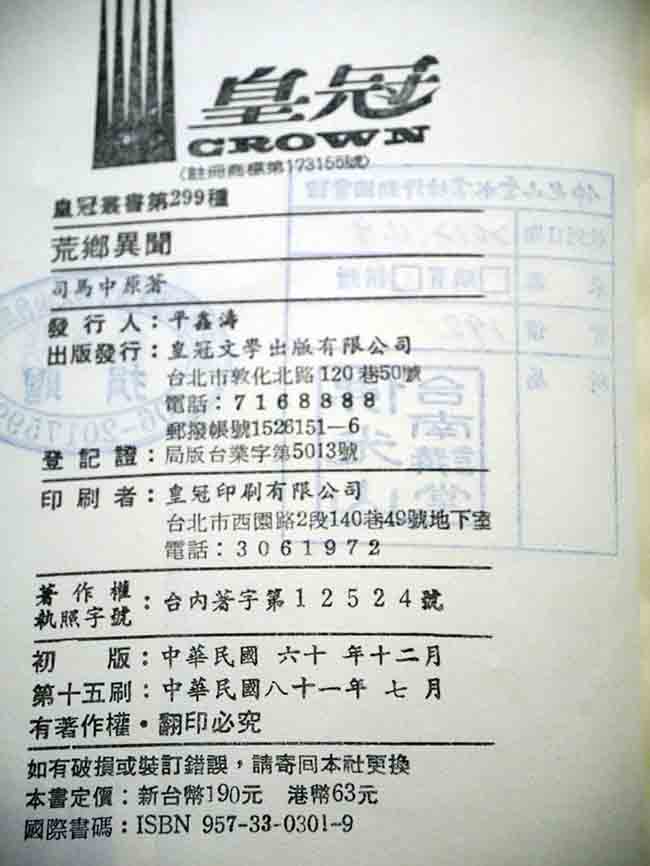 皇冠
CROWN
(註冊商標第173155號)
皇冠叢書第299種
荒鄉異聞
司馬中原著
發行人：平鑫濤
出版發行：皇冠文學出版有限公司
台北市敦化北路120巷50號
電話：7168888
郵撥帳號1526151－6
登記證：局版台業字第5013號
印刷者：皇冠印刷有限公司
台北市西園路2段140巷49號地下室
電話：3061972
著作權執照字號：台內著字第12524號
初版：中華民國六十年十二月
第十五刷：中華民國八十一年七月
有著作權・翻印必究
如有破損或裝訂錯誤，請寄回本社更換
本書定價：新台幣190元 港幣63元
國際書碼：ISBN 957-33-0301-9